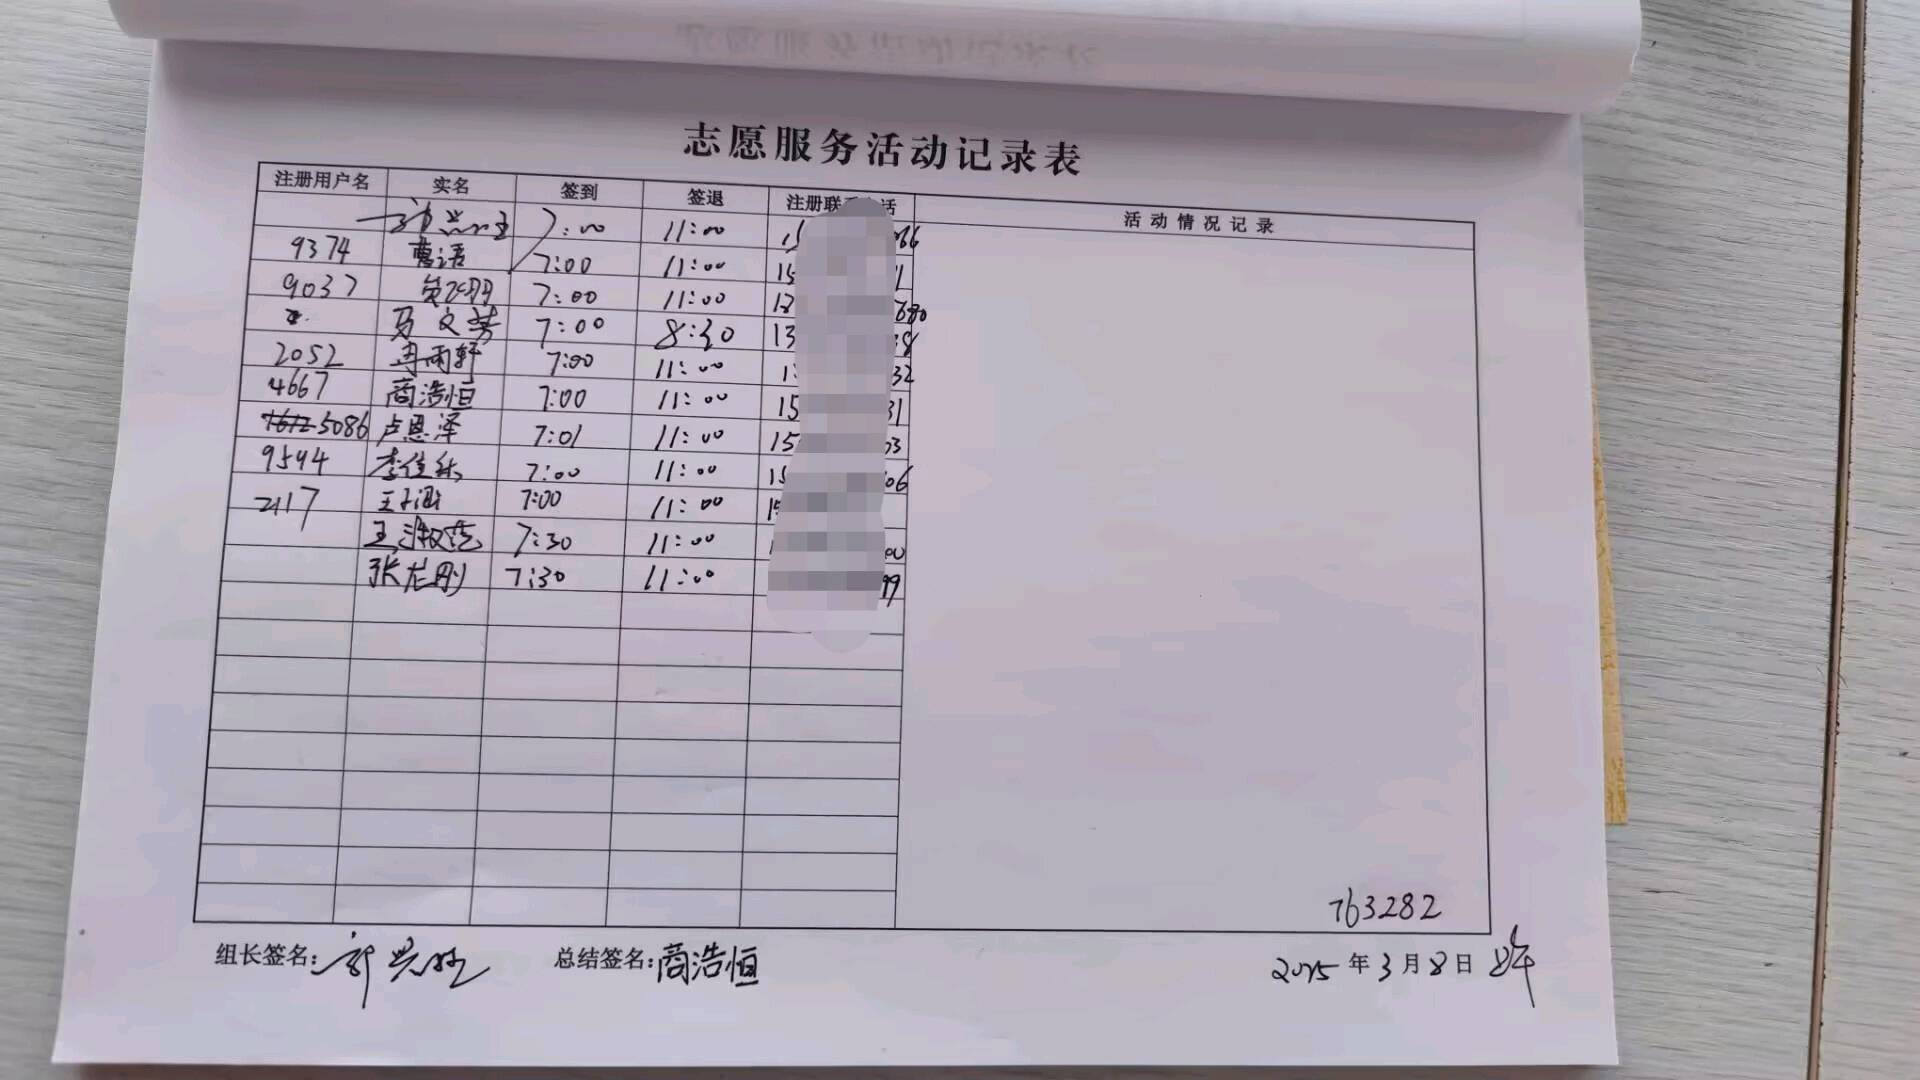 志愿服务活动记录表
注册用户名 实名 签到 签退 注册联 话 活动情况记录
7:00 11:00
9374 曹语 7:00 11:00 15
9037 7:00 11:00 680
马文芳 7:00 8:30 13
2052 冉雨轩 7:00 11:00 32
4667 商浩恒 7:00 11:00 15 31
5086 卢恩泽 7:01 11:00 15 03
9594 李佳 7:00 11:00 15 06
2117 王子涵 7:00 11:00
王淑范 7:30 11:00 00
张龙刚 7:30 11:00 99
763282
组长签名: 总结签名:商浩恒 2025年3月8日